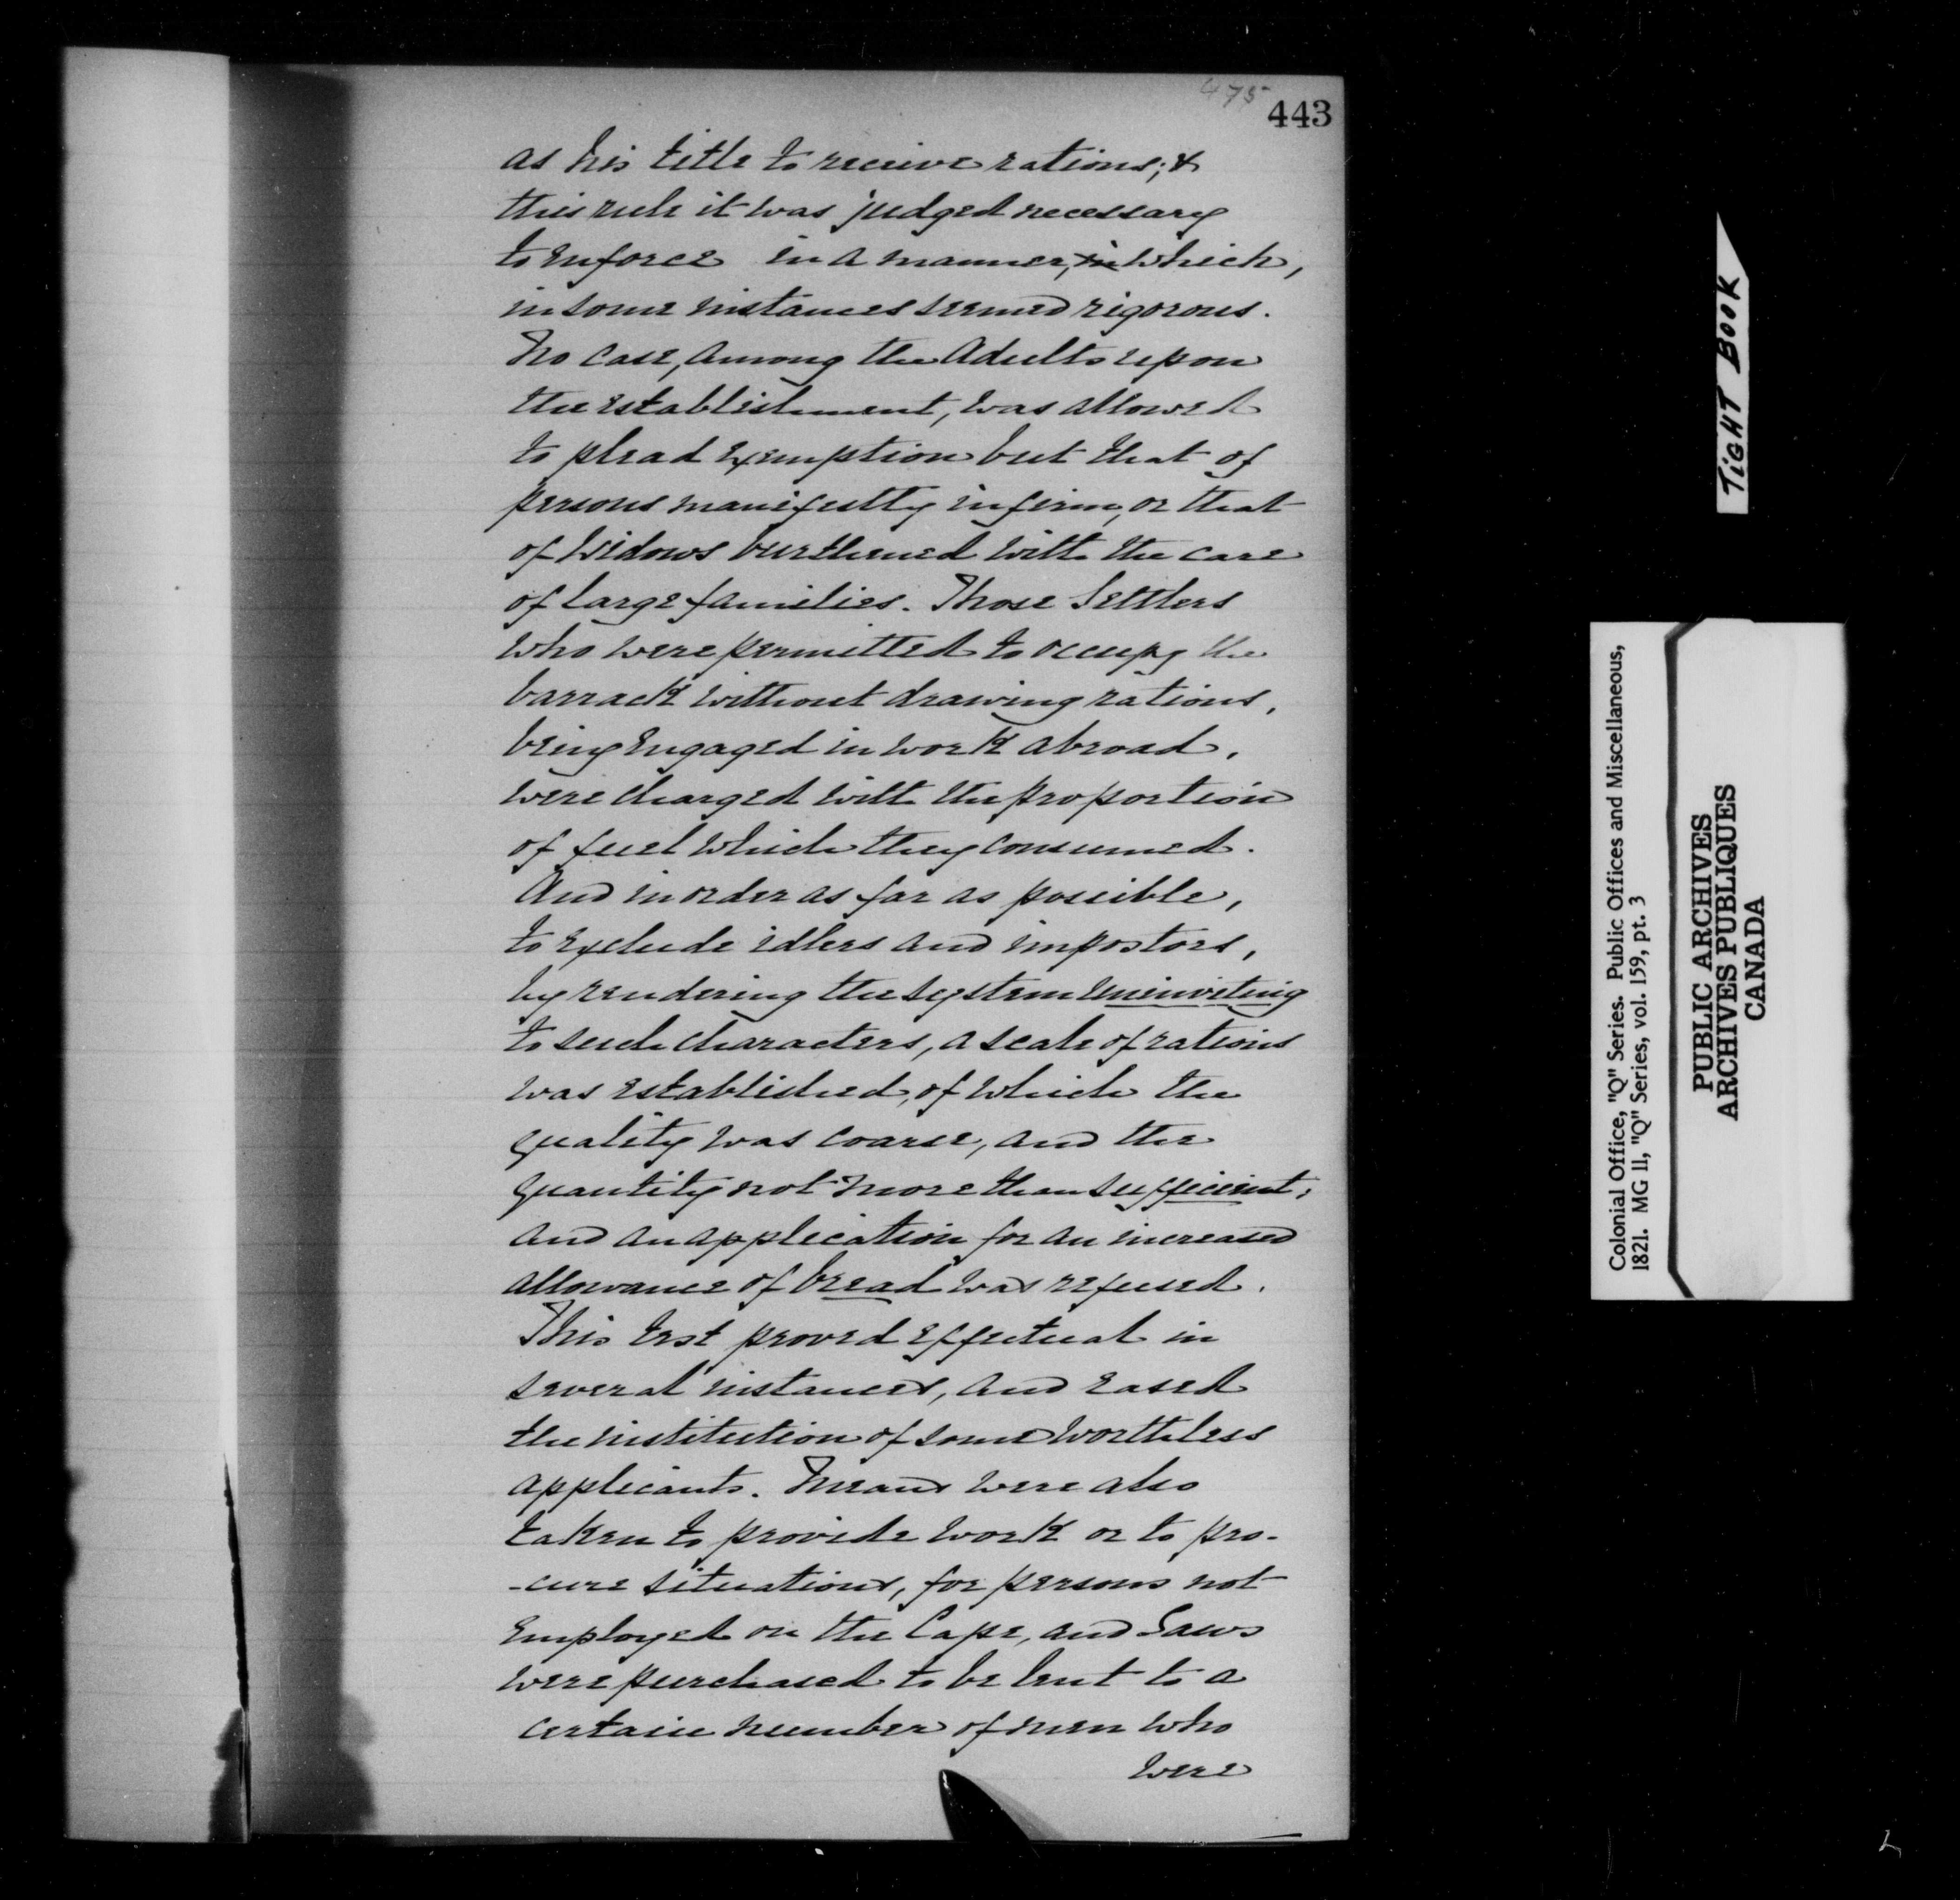 475
443
as his title to receive rations; &
this rule it was judged necessary
to enforce in a manner, in which,
in some instances seemed rigorous.
No case, among the Adults upon
the establishment, was allowed
to plead exemption but that of
persons manifestly infirm, or that
of Widows burthened with the care
of large families. Those Settlers
who were permitted to occupy the
barrack without drawing rations,
being engaged in work abroad,
were charged with the proportion
of fuel which they consumed.
And in order as far as possible,
to exclude idlers and impostors,
by rendering the system uninviting
to such characters, a scale of rations
was established, of which the
quality was coarse, and the
quantity not more than sufficient;
and an application for an increased
allowance of bread was refused.
This test proved effectual in
several instances, and eased
the institution of some worthless
applicants. Means were also
taken to provide work or to pro-
-cure situations, for persons not
employed on the Cape, and Saws
were purchased to be lent to a
certain number of men who
were
TiGHT BOOK
Colonial Office, "Q" Series. Public Offices and Miscellaneous,
1821. MG 11, "Q" Series, vol. 159, pt. 3
PUBLIC ARCHIVES
ARCHIVES PUBLIQUES
CANADA